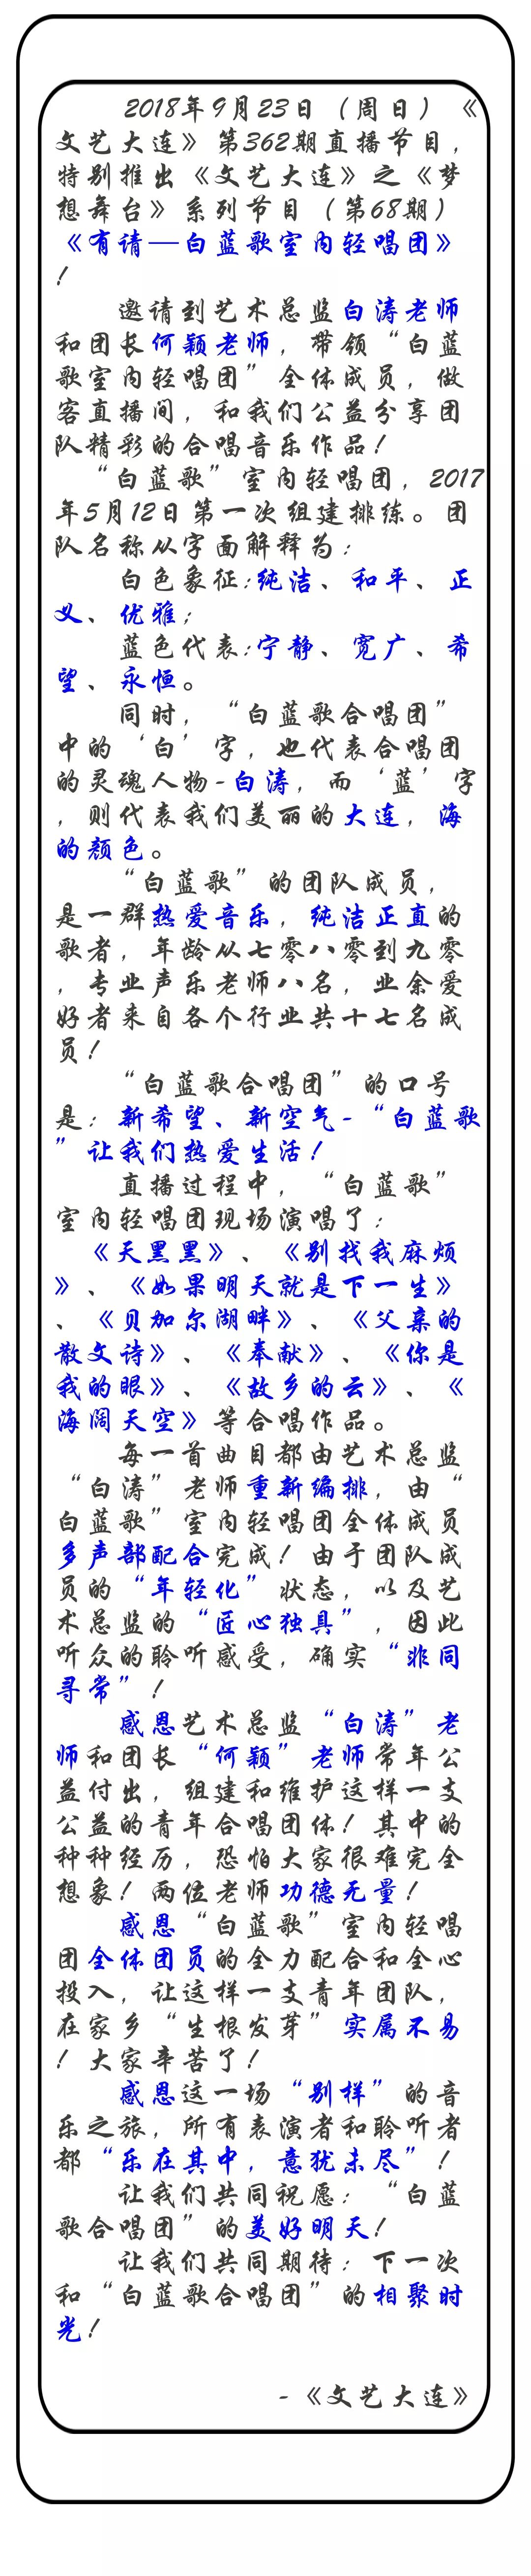 2018年9月23日（周日）《
文艺大连》第362期直播节目，
特别推出《文艺大连》之《梦
想舞台》系列节目（第68期）
《有请—白蓝歌室内轻唱团》
！
邀请到艺术总监白涛老师
和团长何颖老师，带领“白蓝
歌室内轻唱团”全体成员，做
客直播间，和我们公益分享团
队精彩的合唱音乐作品！
“白蓝歌”室内轻唱团，2017
年5月12日第一次组建排练。团
队名称从字面解释为：
白色象征:纯洁、和平、正
义、优雅；
蓝色代表:宁静、宽广、希
望、永恒。
同时，“白蓝歌合唱团”
中的‘白’字，也代表合唱团
的灵魂人物-白涛，而‘蓝’字
，则代表我们美丽的大连，海
的颜色。
“白蓝歌”的团队成员，
是一群热爱音乐，纯洁正直的
歌者，年龄从七零八零到九零
，专业声乐老师八名，业余爱
好者来自各个行业共十七名成
员！
“白蓝歌合唱团”的口号
是：新希望、新空气-“白蓝歌
”让我们热爱生活！
直播过程中，“白蓝歌”
室内轻唱团现场演唱了：
《天黑黑》、《别找我麻烦
》、《如果明天就是下一生》
、《贝加尔湖畔》、《父亲的
散文诗》、《奉献》、《你是
我的眼》、《故乡的云》、《
海阔天空》等合唱作品。
每一首曲目都由艺术总监
“白涛”老师重新编排，由“
白蓝歌”室内轻唱团全体成员
多声部配合完成！由于团队成
员的“年轻化”状态，以及艺
术总监的“匠心独具”，因此
听众的聆听感受，确实“非同
寻常”！
感恩艺术总监“白涛”老
师和团长“何颖”老师常年公
益付出，组建和维护这样一支
公益的青年合唱团体！其中的
种种经历，恐怕大家很难完全
想象！两位老师功德无量！
感恩“白蓝歌”室内轻唱
团全体团员的全力配合和全心
投入，让这样一支青年团队，
在家乡“生根发芽”实属不易
！大家辛苦了！
感恩这一场“别样”的音
乐之旅，所有表演者和聆听者
都“乐在其中，意犹未尽”！
让我们共同祝愿：“白蓝
歌合唱团”的美好明天！
让我们共同期待：下一次
和“白蓝歌合唱团”的相聚时
光！
-《文艺大连》